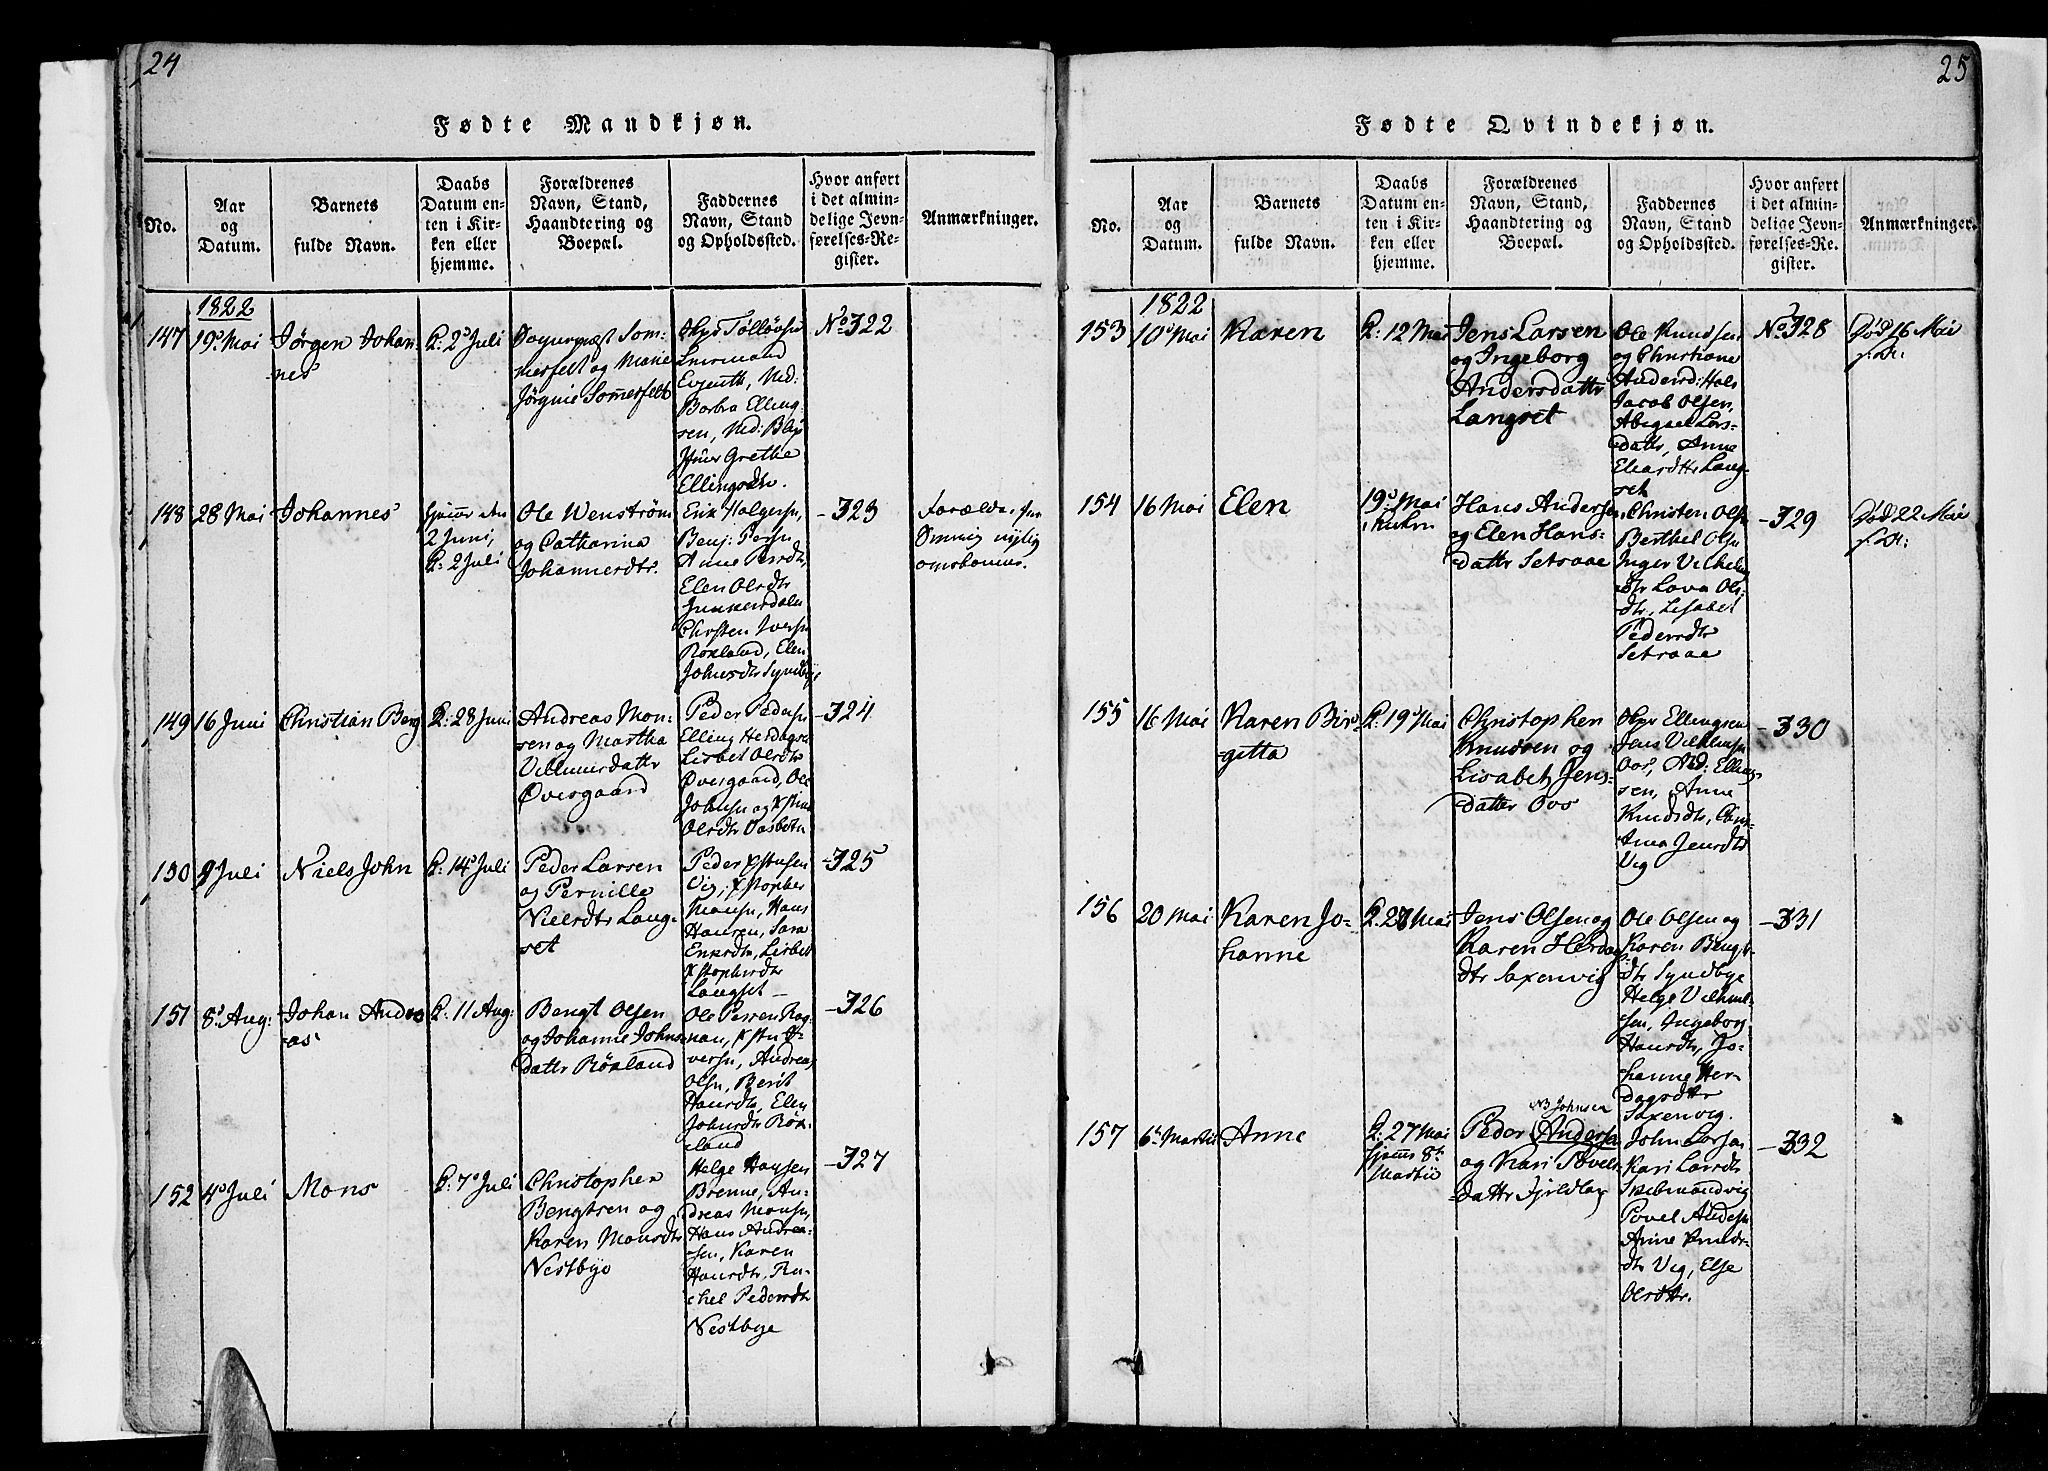 24
Fødte Mandkjøn.
No.
Aar
og
Datum.
Barnets
fulde Navn.
Daabs
Datum en-
ten i Kir-
ken eller
hjemme.
Forældrenes
Navn, Stand,
Haandtering og
Boepæl.
Faddernes
Navn, Stand
og Opholdssted.
Hvor anført
i det almin-
delige Jevn-
førelses-Re-
gister.
Anmærkninger.
1822
147
19 Mai
Jörgen Johan-
nes
K: 2 Juli
Som-
merfelt og Marie
Jörgine Somerfelt
Evjenth, Mad:
Barbra Elling-
sen, Mad:
Grethe
Ellingsdtr.
No 322
148
28 Mai
Johannes
2 Juni,
K: 2 Juli
Ole Wenström
og Catharina
Johannesdtr.
Erik Holgersn,
Benj: Persn
Anne Persdtr,
Elen Olsdtr
Junkersdalen
Christen Iversn
Röxland, Elen
Johnsdtr Syndbye
-323
149
16 Juni
Christian Berg
K: 28 Juni
Andreas Mon-
sen og Martha
Villumsdattr
Øvergaard
Peder Pedersn
Elling Herdagsn
Lisbet Olsdtr
Øvergaard, Ole
Johnsn og Xstina
Olsdtr
-324
150
Juli
Niels John
K: 14 Juli
Peder Larsen
og Pernille
Nielsdtr Lang-
set
Peder Xstensen
Vig, Xstopher
Monsn, Hans
Hansen, Sara
Eriksdtr, Lisbet
Xstophersdtr
Langset
-325
151
8 Aug:
Johan Andre-
as
K: 11 Aug:
Bengt Olsen
og Johanne Johns-
dattr Röxland
Ole Persen Rog-
nan, Xsten I-
versn, Andreas
Olsn, Berit
Hansdtr, Elen
Johnsdtr Röx-
land
-326
152
4 Juli
Mons
K: 7 Juli
Christopher
Bengtsen og
Karen Monsdtr
Nestbye
Helge Hansen
Brenne, An-
dreas Monsn,
Hans Andrea-
sen, Karen
Hansdtr, Ra-
chel Pedersdtr
Nestbye
-327
25
Fødte Qvindekjøn.
No.
Aar
og
Datum.
Barnets
fulde Navn.
Daabs
Datum en-
ten i Kir-
ken eller
hjemme.
Forældrenes
Navn, Stand,
Haandtering og
Boepæl.
Faddernes
Navn, Stand
og Opholdssted.
Hvor anført
i det almin-
delige Jevn-
førelses-Re-
gister.
Anmærkninger.
1822
153
10 Mai
Karen
K: 12 Mai
Jens Larsen
og Ingeborg
Andersdattr
Langset
Ole Knudsen
og Christiane
Andersd: Hals
Jacob Olsen,
Abigael Lars-
dattr, Anne
Lang-
set
No 328
Död 16 Mai
154
16 Mai
Elen
19 Mai
i Kirken
Hans Andersen
og Elen Hans-
dattr Setsaae
Christen Olsn
Berthel Olsn
Inger Vilhelms-
dtr Lova Ols-
dtr, Lisabet
Pedersdtr
Setsaae
-329
Död 22 Mai
155
16 Mai
Karen Bir-
gitta
K: 19 Mai
Christopher
Knudsen og
Lisabet Jens-
dattr Oos
Ellingsen
Jens Villumsn
Oos, Md: Elling-
sen, Anne
Knudsdtr,
Anna Jensdtr
Vig
-330
156
20 Mai
Karen Jo-
hanne
K: 27 Mai
Jens Olsen og
Karen Herdags-
dtr Saxenvig
Ole Olsen og
Karen Bengts-
dtr Syndbye
Helge Vilhelm-
sen, Ingeborg
Hansdtr, Jo-
hanne Her-
dagsdtr
Saxenvig.
-331
157
6 Martii
Anne
K: 27 Mai
8 
Martii
NB Johnsen
Peder Andersen
og Kari Povels-
dattr
John Larsen
Kari Larsdtr
Skibmandvig
Povel Andersn
Anne Knuds-
dtr Vig, Else
Olsdtr.
-332